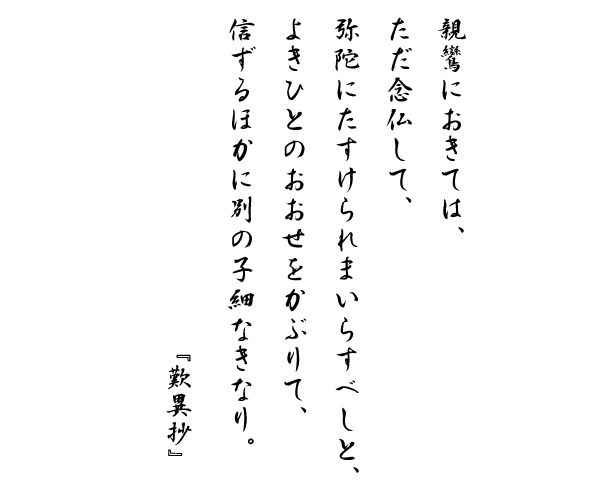 親鸞におきては、
ただ念仏して、
弥陀にたすけられまいらすべしと、
よきひとのおおせをかぶりて、
信ずるほかに別の子細なきなり。
『歎異抄』